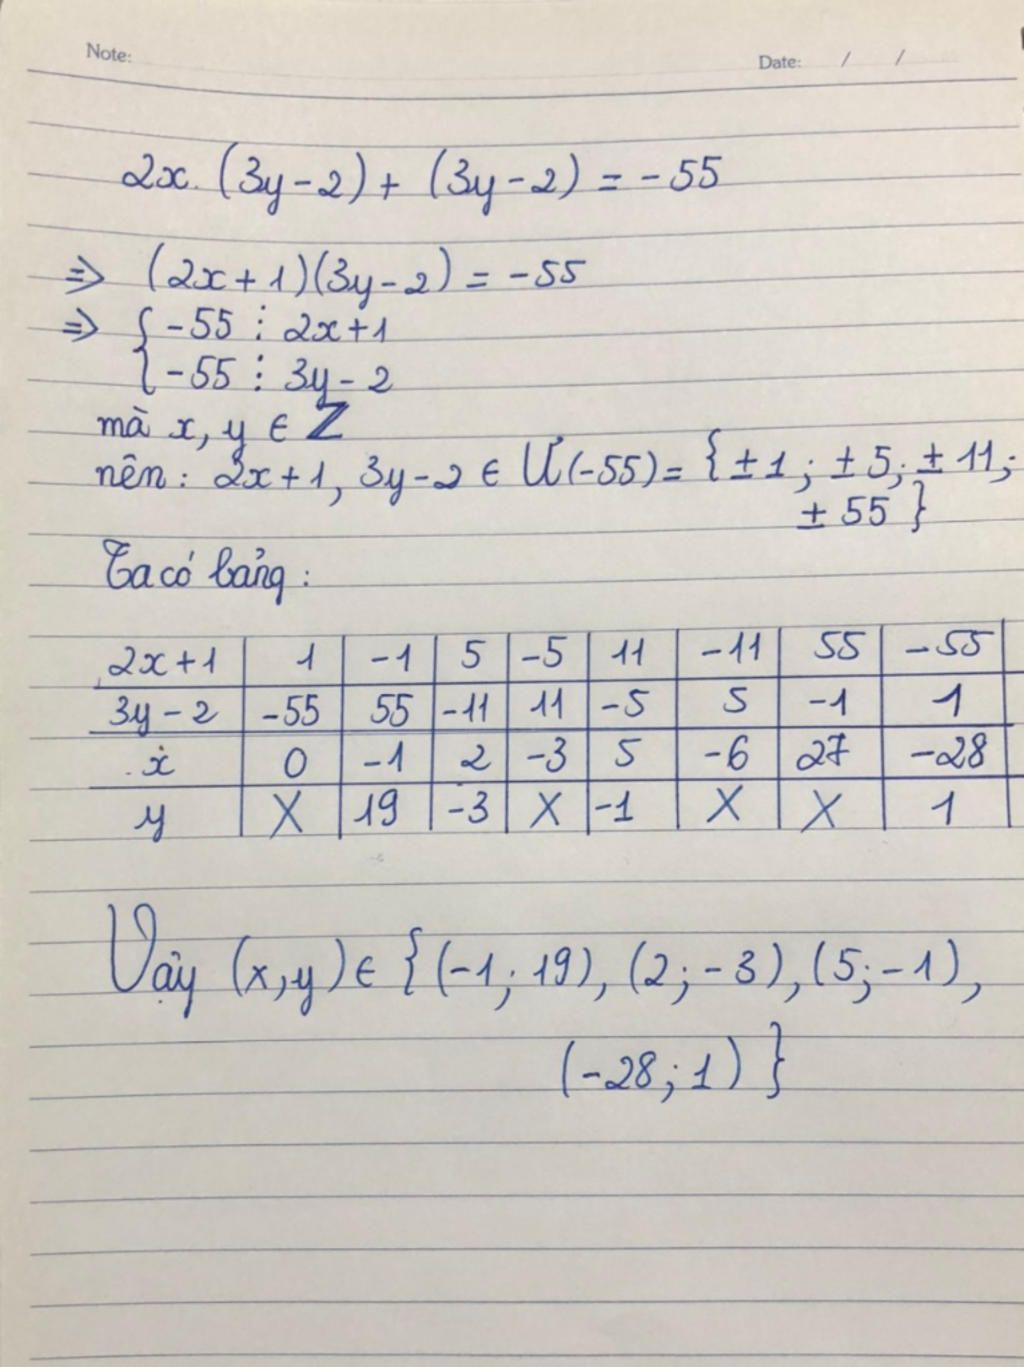 Note:
Date: / /
2x. (3y-2) + (3y-2) = -55
=> (2x+1)(3y-2) = -55
=> { -55 ⋮ 2x+1
{ -55 ⋮ 3y-2
mà x, y ∈ Z
nên: 2x+1, 3y-2 ∈ Ư(-55) = {±1; ±5; ±11;
±55}
Ta có bảng:
2x+1 | 1 | -1 | 5 | -5 | 11 | -11 | 55 | -55
3y-2 | -55 | 55 | -11 | 11 | -5 | 5 | -1 | 1
x | 0 | -1 | 2 | -3 | 5 | -6 | 27 | -28
y | X | 19 | -3 | X | -1 | X | X | 1
Vậy (x,y) ∈ {(-1; 19), (2; -3), (5; -1),
(-28; 1)}